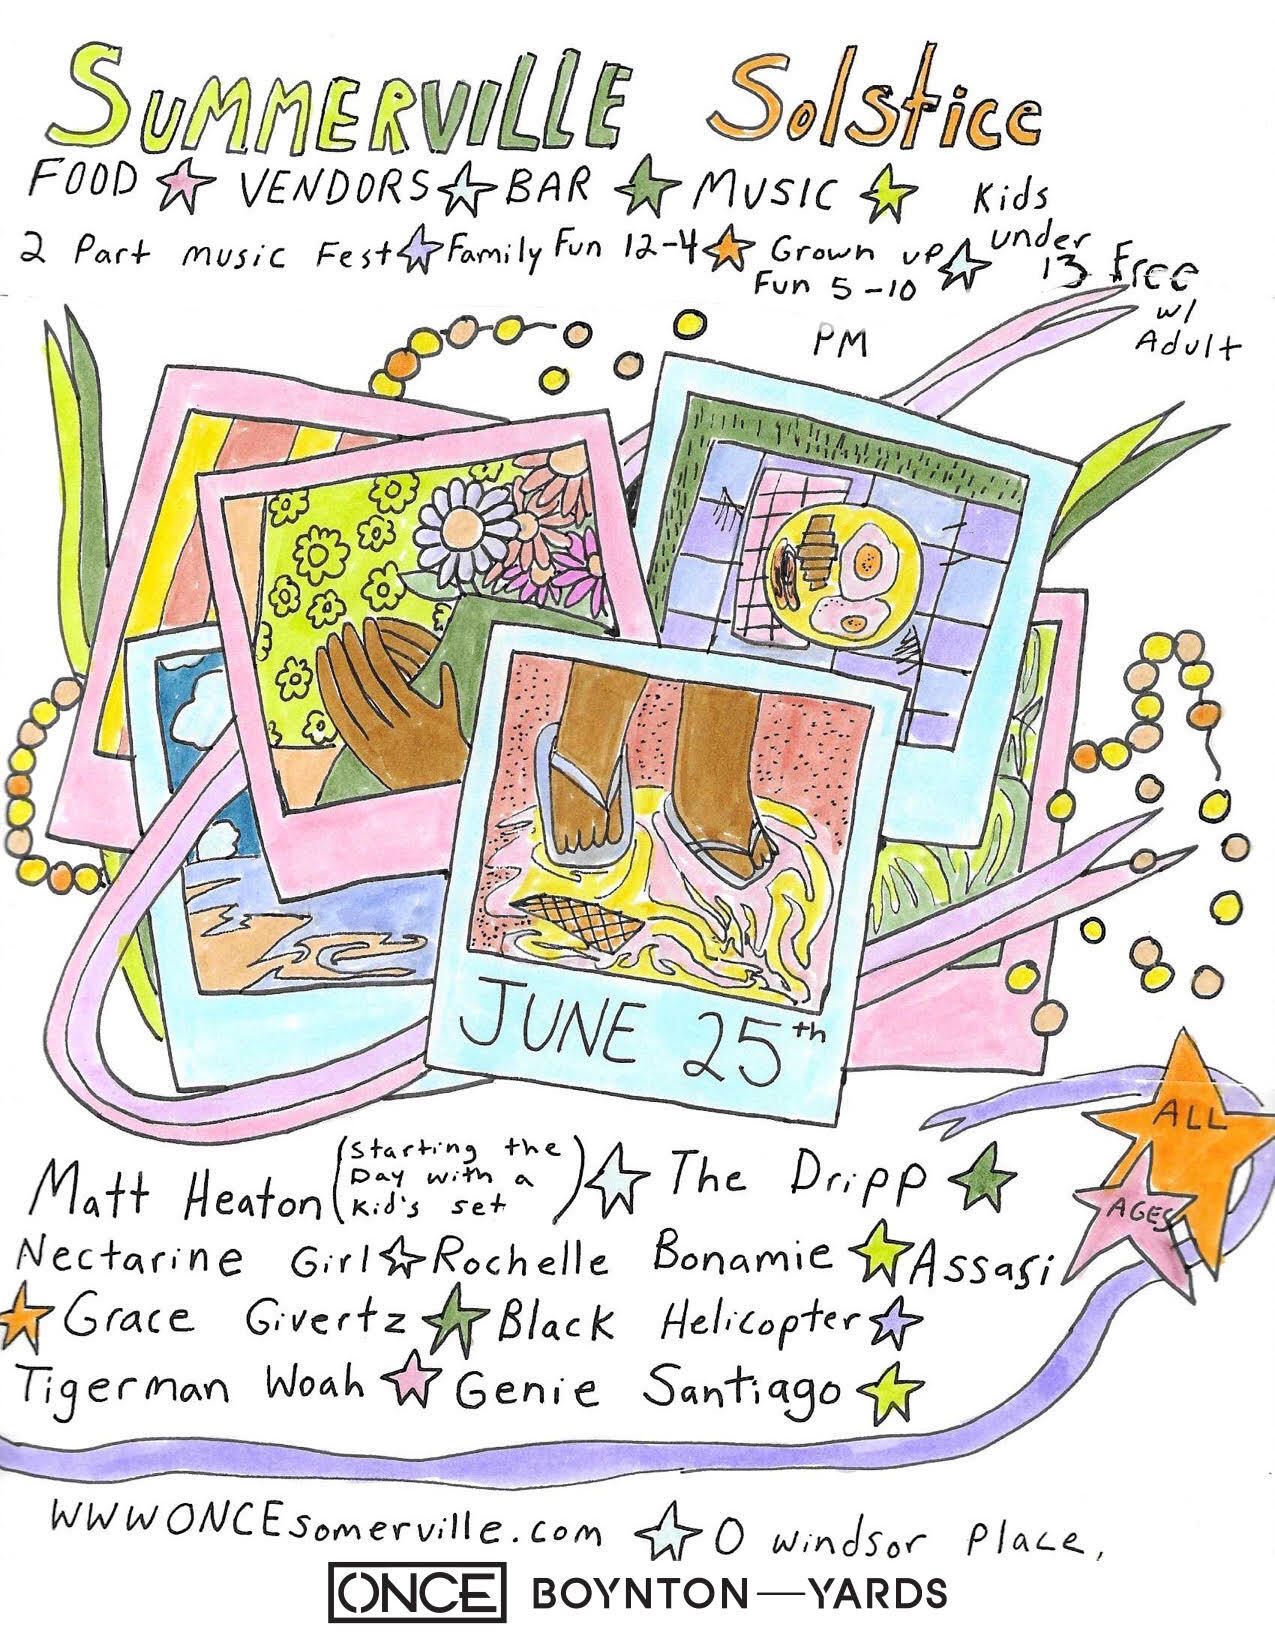 SUMMERVILLE Solstice
FOOD VENDORS BAR MUSIC Kids
under
13 Free
w/
Adult
2 Part music Fest Family Fun 12-4 Grown up
Fun 5-10
PM
JUNE 25th
ALL
AGES
Matt Heaton (Starting the
Day with a
Kid's set) The Dripp
Nectarine Girl Rochelle Bonamie Assasi
Grace Givertz Black Helicopter
Tigerman Woah Genie Santiago
WWWONCEsomerville.com 0 windsor Place,
ONCE BOYNTON—YARDS